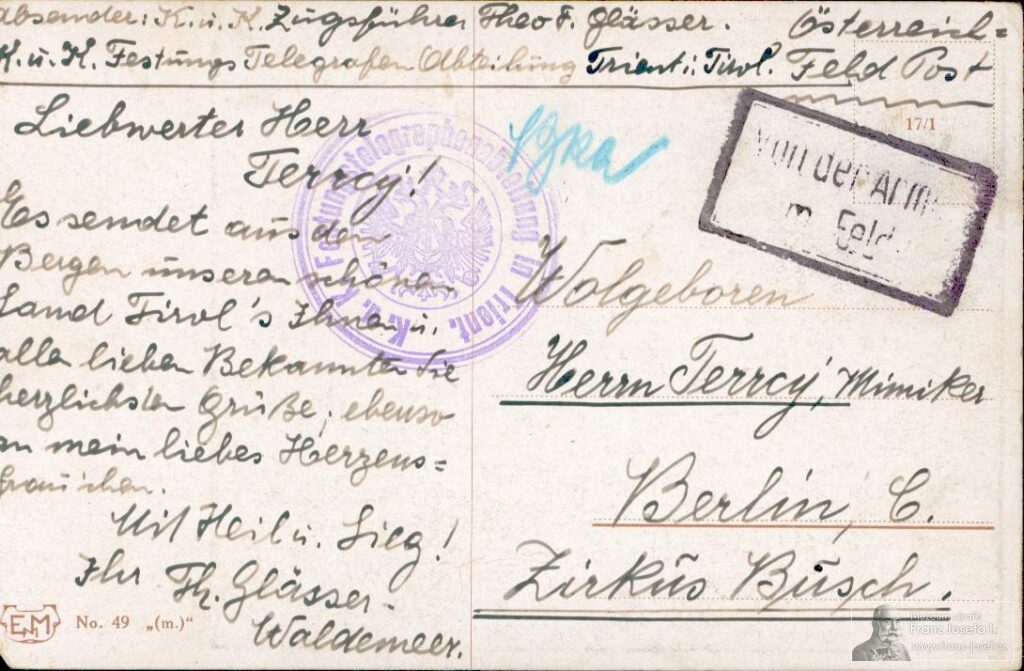 Absender: K. u. K. Zugsführer Theo F. Glässer. Österreich=
K. u. K. Festungs Telegrafen Abteilung Trient i. Tirol. Feld Post
17/1
Liebwerter Herr
Terrcy!
Es sendet aus den
Bergen unseren schönen
Land Tirol's Ihnen u.
alle lieben Bekannten die
herzlichsten Grüße; ebenso
an mein liebes Herzens=
frau'chen.
Mit Heil u. Sieg!
Ihr Th. Glässer-
Waldemeer.
K. u. K. Festungstelegraphenabteilung in Trient.
Von der Arm
m Feld
Wolgeboren
Herrn Terrcy, Mimiker
Berlin, C.
Zirkus Busch.
EMM No. 49 „(m.)"
Franz Josefa I.
www.franz-josef.cz